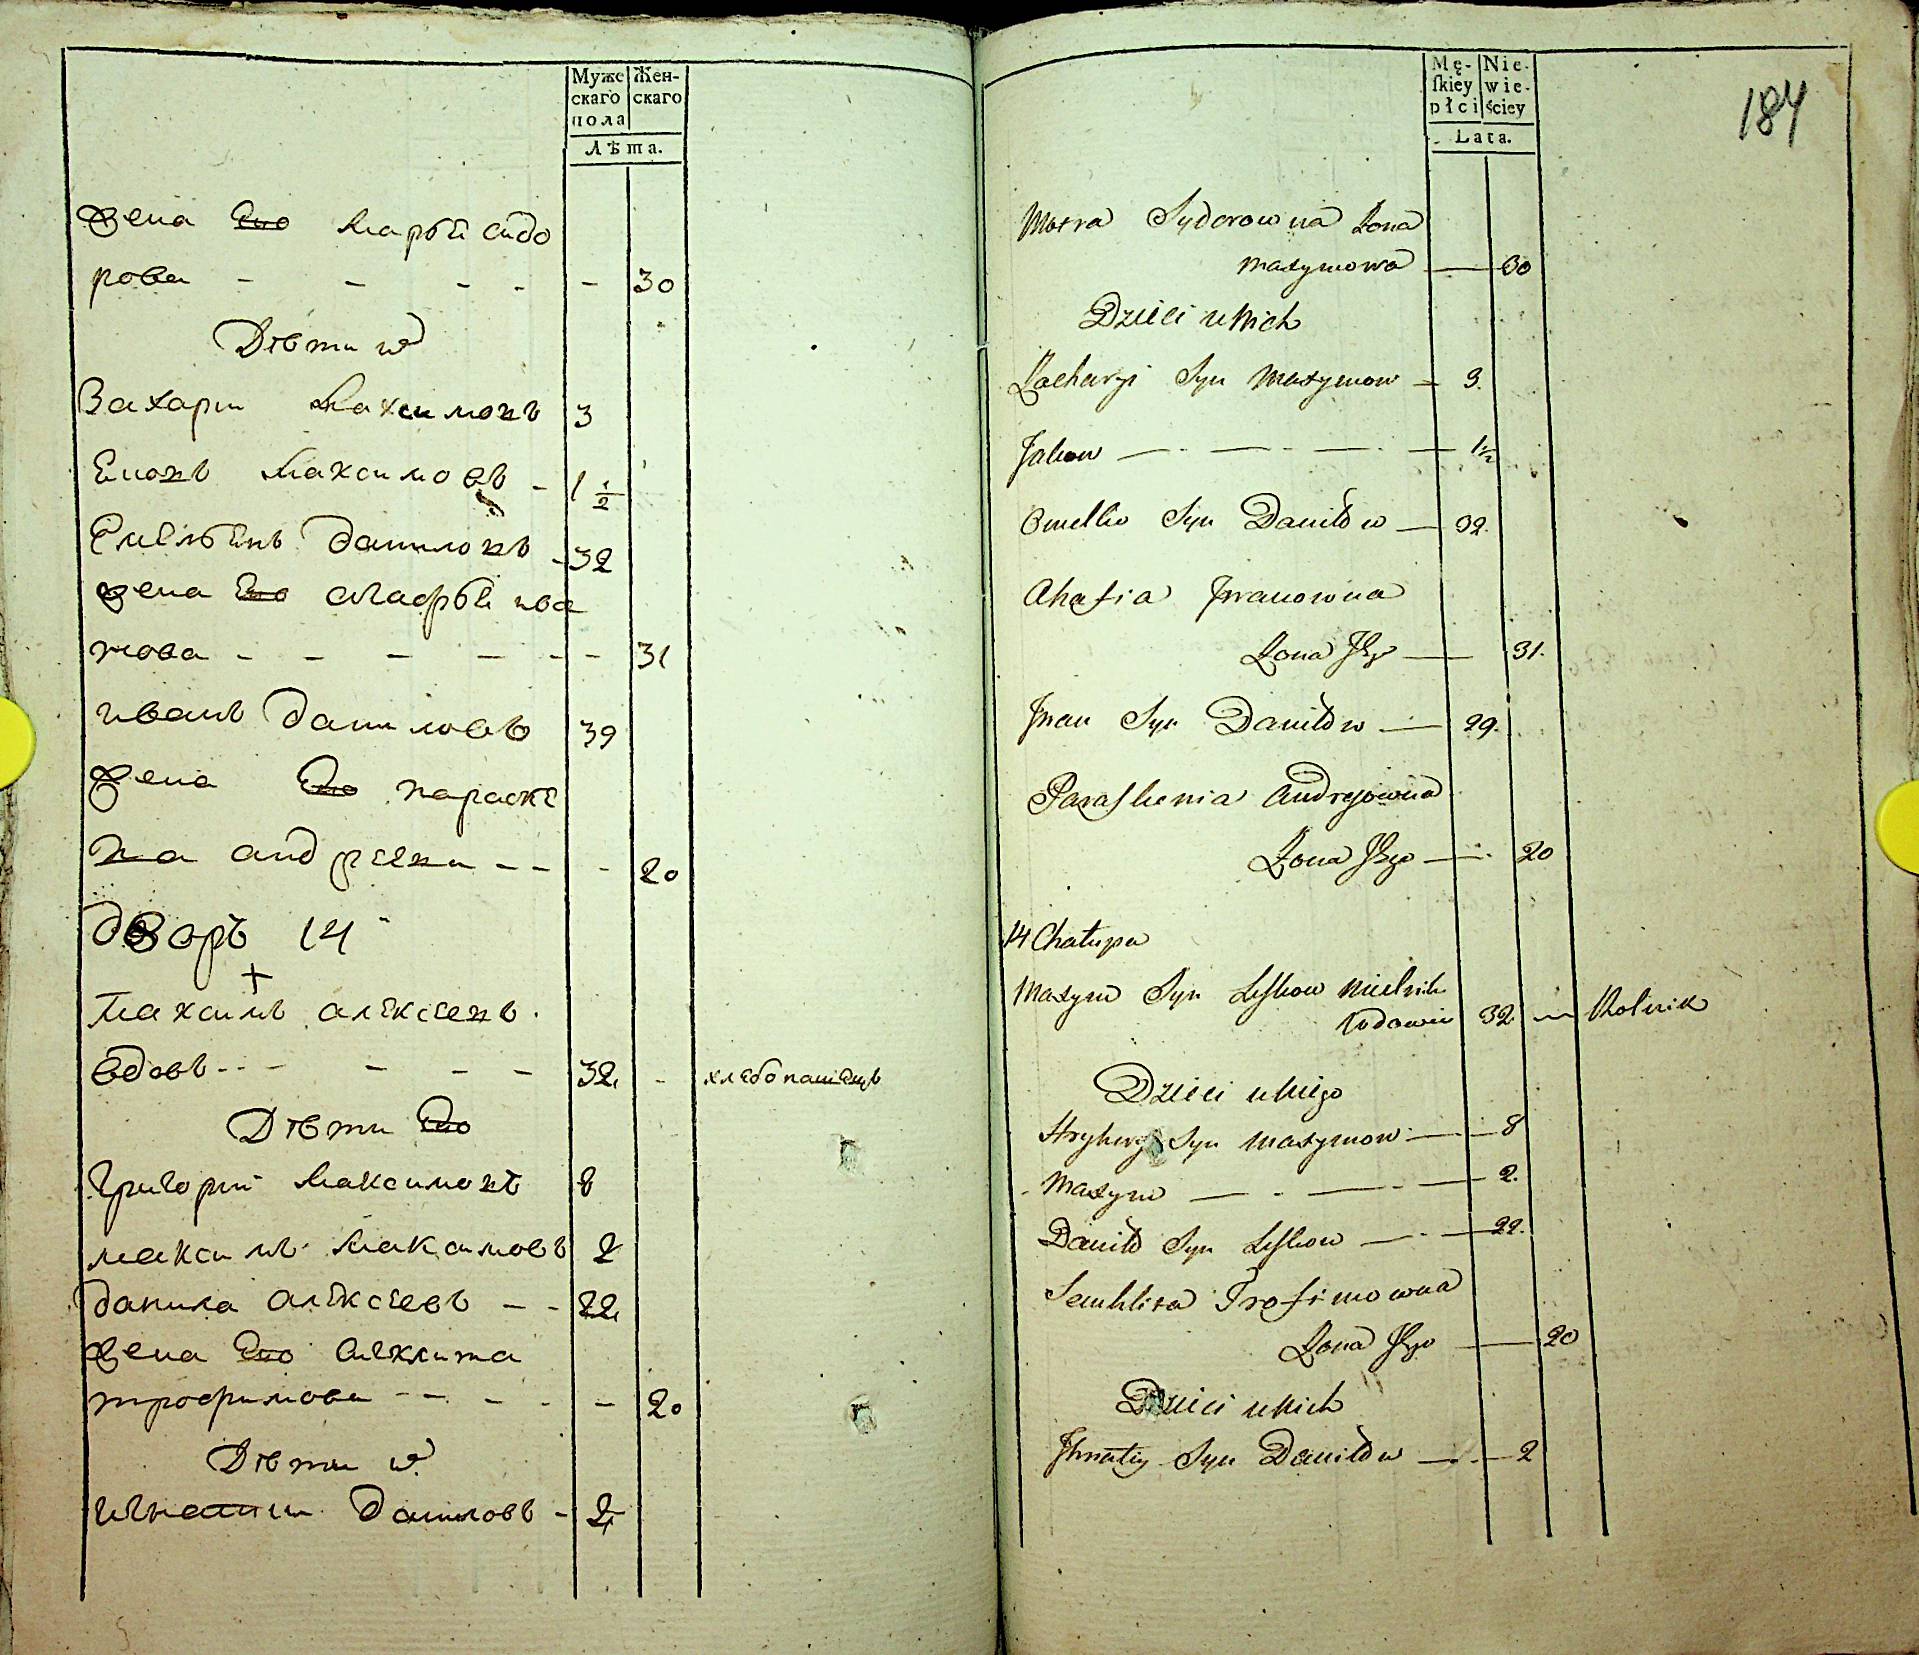 Муже
скаго
пола
Жен-
скаго
Лѣта.
жена Его марья сидо
рова - - - - - 30
Дѣти их
Захари Максимовъ 3
Максимовъ - 1 1/2
Емельянъ даниловъ - 32
жена Его агафья ива
нова - - - - - - 31
иванъ даниловъ 39
жена Его параске
ва андреева - - - 20
дворъ 14
+
Максимъ алексеевъ
вдовъ - - - - - 32 - хлебопашецъ
Дѣти Его
Григорий Максимовъ 8
максимъ Максимовъ 2
данила алексеевъ - - 22
жена Его
трофимова - - - - - 20
Дѣти их
игнатии даниловъ - 2
Mę-
skiey
płci
Nie-
wie-
ściey
Lata.
184
Motra Sydorowna Żona
Maxymowa — 30
Dzieci u Nich
Zacharyi Syn Maxymow — 3.
Jakow — - — - — - — 1 1/2
Omelko Syn Daniłow — 32.
Ahafia Jwanowna
Żona Jego — 31.
Jwan Syn Daniłow — 29.
Paraskewia Andrejowna
Żona Jego — 20
14 Chałupa
Maxym Syn Leskow Mielnik
Wdowiec 32 — Rolnik
Dzieci u Niego
Hryhory Syn Maxymow — 8
Maxym — - — - — 2.
Daniło Syn Leskow — - — 22.
Trofimowna
Żona Jego — 20
Dzieci u Nich
Jhnatiy Syn Daniłow — - — 2